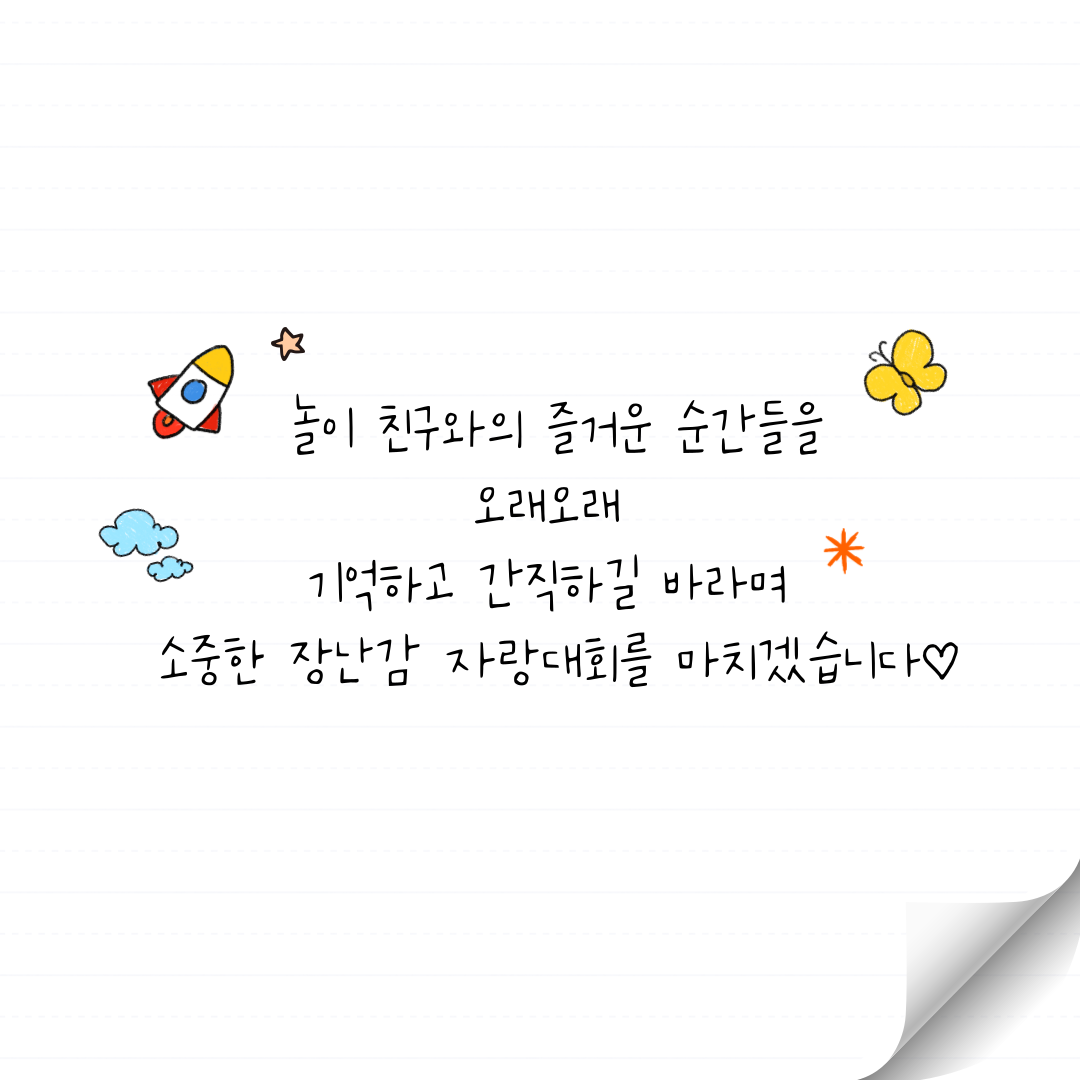 놀이 친구와의 즐거운 순간들을
오래오래
기억하고 간직하길 바라며
소중한 장난감 자랑대회를 마치겠습니다♡